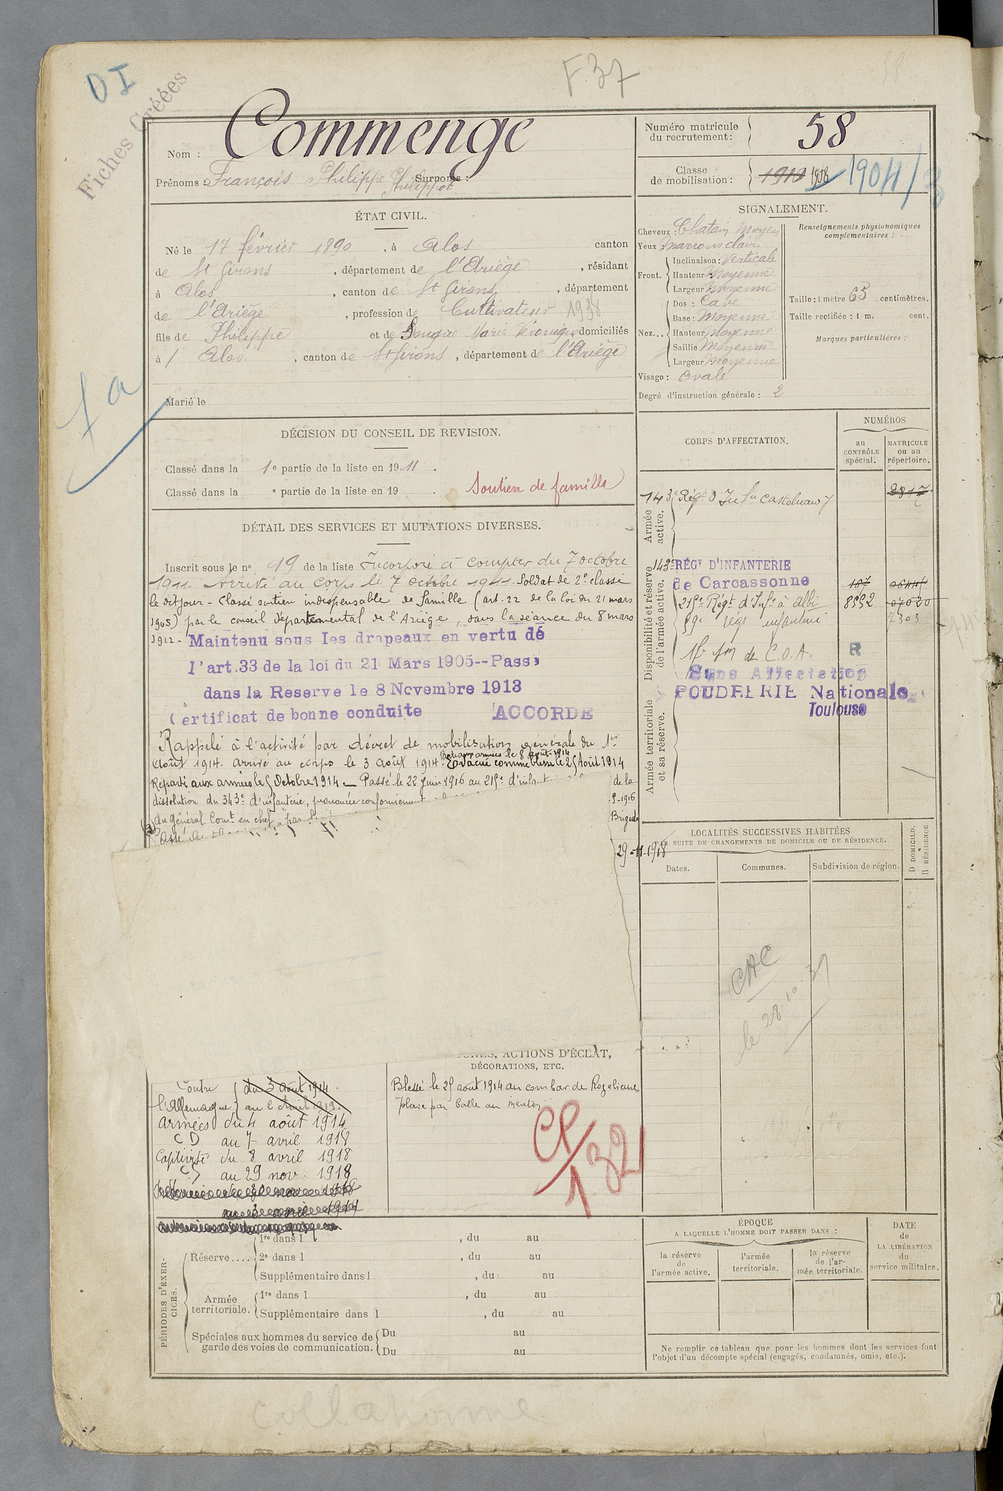 DI
F. 37
58
Fiches Créées
Nom : Commenge
Prénoms : François Philippe Surnoms :
Philippot
Numéro matricule du recrutement : 58
Classe de mobilisation : 1910 1908 1904/
ÉTAT CIVIL.
Né le 17 février 1890, à Alos canton
de St Girons, département de l'Ariège, résidant
à Alos, canton de St Girons, département
de l'Ariège, profession de Cultivateur 1938
fils de Philippe et de Marie domiciliés
à Alos, canton de St Girons, département de l'Ariège
Marié le
1a
SIGNALEMENT.
Cheveux : Chatain Moyen
Yeux Marrons clairs
Front. Inclinaison : Verticale
Hauteur Moyenne
Largeur Moyenne
Nez... Dos : Cave
Base : Moyenne
Hauteur Moyenne
Saillie Moyenne
Largeur Moyenne
Visage : Ovale
Renseignements physionomiques complémentaires :
Taille : 1 mètre 65 centimètres.
Taille rectifiée : 1 m. cent.
Marques particulières :
Degré d'instruction générale : 2
DÉCISION DU CONSEIL DE REVISION.
Classé dans la 1e partie de la liste en 1911.
Classé dans la e partie de la liste en 19 .
Soutien de famille
DÉTAIL DES SERVICES ET MUTATIONS DIVERSES.
Inscrit sous le no 19 de la liste Incorporé à compter du 7 octobre
1911. Arrivé au corps le 7 octobre 1911. Soldat de 2e classe
le dit jour - Classé soutien indispensable de famille (art. 22 de la loi du 21 mars
1905) par le conseil départemental de l'Ariège, dans la séance du 8 mars
1912. Maintenu sous les drapeaux en vertu de
l'art. 33 de la loi du 21 Mars 1905--Passé
dans la Reserve le 8 Novembre 1913
Certificat de bonne conduite ACCORDÉ
Rappelé à l'activité par décret de mobilisation générale du 1er
Août 1914. arrivé au corps le 3 août 1914. Evacué comme blessé le 25 Août 1914
Reparti aux armées le 5 Octobre 1914 - Passé le 22 Juin 1916 au 215e d'infant
dissolution du 343e d'infanterie, prononcée conformément de la
du général Comt en chef 1916
Brigade
29-11-1918
CORPS D'AFFECTATION.
NUMÉROS
au contrôle spécial.
MATRICULE ou au répertoire.
Armée active.
143e Régt d'Infie Castelnaudary
2317
Disponibilité et réserve de l'armée active.
143e RÉGt D'INFANTERIE
de Carcassonne
215e Régt d'Infie à Albi 8832
régt infanterie 7303
de C.O.A. R
Sans Affectation
POUDRERIE Nationale
Toulouse
Armée territoriale et sa réserve.
LOCALITÉS SUCCESSIVES HABITÉES
PAR SUITE DE CHANGEMENTS DE DOMICILE OU DE RÉSIDENCE.
Dates.
Communes.
Subdivision de région.
D DOMICILE.
R RÉSIDENCE
CAC
le 28.10.31
ACTIONS D'ÉCLAT,
DÉCORATIONS, ETC.
Contre l'Allemagne du 3 août 1914
armées du 4 août 1914
CD au 7 avril 1918
Captivité du 8 avril 1918
au 29 nov. 1918
Blessé le 25 août 1914 au combat de Rozelieures
place par balle au menton
CP/132
PÉRIODES D'EXERCICES.
Réserve.... 1re dans l , du au
2e dans l , du au
Supplémentaire dans l , du au
Armée territoriale. 1re dans l , du au
Supplémentaire dans l , du au
Spéciales aux hommes du service de garde des voies de communication. Du au
Du au
ÉPOQUE
A LAQUELLE L'HOMME DOIT PASSER DANS :
la réserve de l'armée active.
l'armée territoriale.
la réserve de l'armée territoriale.
DATE de LA LIBÉRATION du service militaire.
Ne remplir ce tableau que pour les hommes dont les services font
l'objet d'un décompte spécial (engagés, condamnés, omis, etc.).